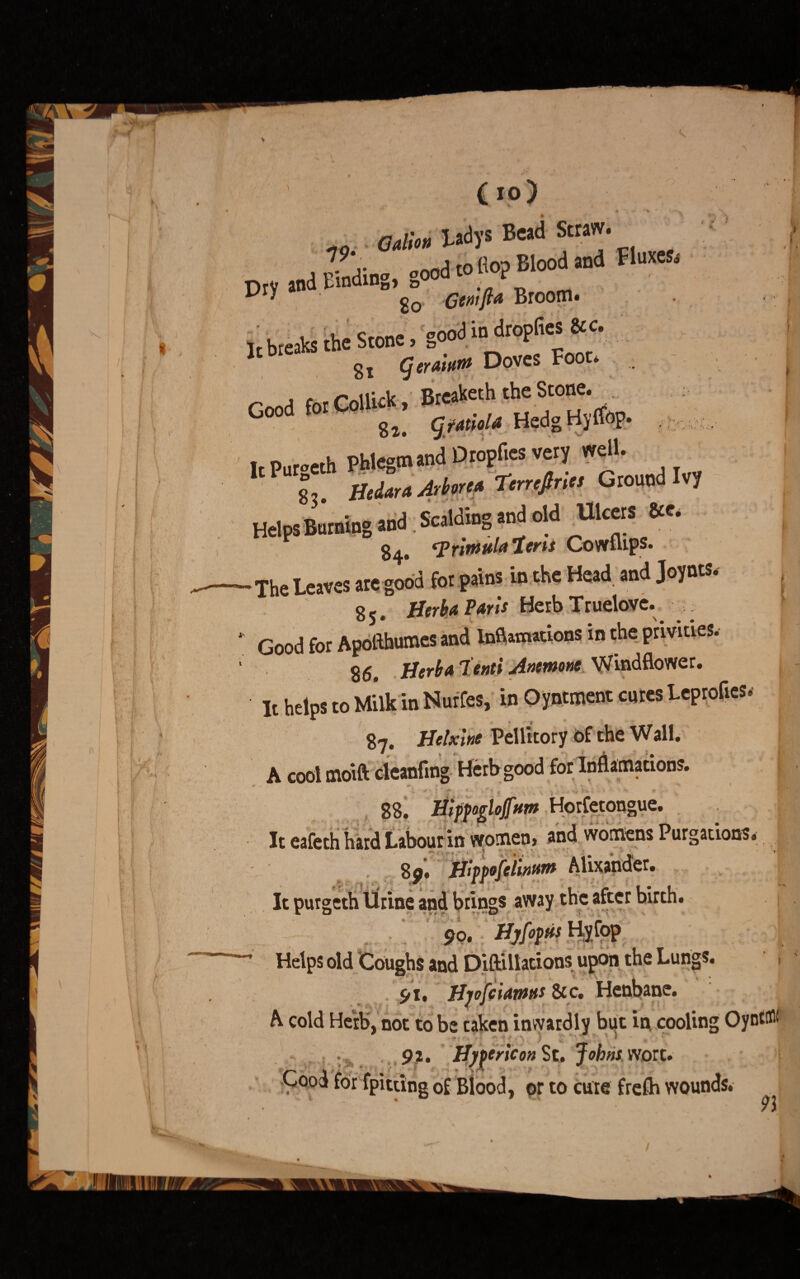 (10)
79. Galion Ladys Bead Straw.
Dry and Binding, good to ſtop Blood and Fluxes.
80 Geniſta Broom.
It breaks the Stone, good in dropſies &c.
81 Geraium Doves Foot.
Good for Collick, Breaketh the Stone.
82. Gratiola Hedg Hyſſop.
It Purgeth Phlegm and Dropſies very well.
83. Hedara Arborea Terreſtries Ground Ivy
Helps Burning and Scalding and old Ulcers &c.
84. Primula Veris Cowſlips.
The Leaves are good for pains in the Head and Joynts.
85. Herba Paris Herb Truelove.
Good for Apoſthumes and Inflamations in the privities.
86. Herba Venti Anemone Windflower.
It helps to Milk in Nurſes, in Oyntment cures Leproſies.
87. Helxine Pellitory of the Wall.
A cool moiſt cleanſing Herb good for Inflamations.
88. Hippogloſſum Horſetongue.
It eaſeth hard Labour in women, and womens Purgations.
89. Hippoſelinum Alixander.
It purgeth Urine and brings away the after birth.
90. Hyſopus Hyſop
Helps old Coughs and Diſtillations upon the Lungs.
91. Hyoſciamus &c. Henbane.
A cold Herb, not to be taken inwardly but in cooling Oyntm:
92. Hypericon St. Johns wort.
Good for ſpitting of Blood, or to cure freſh wounds.
93